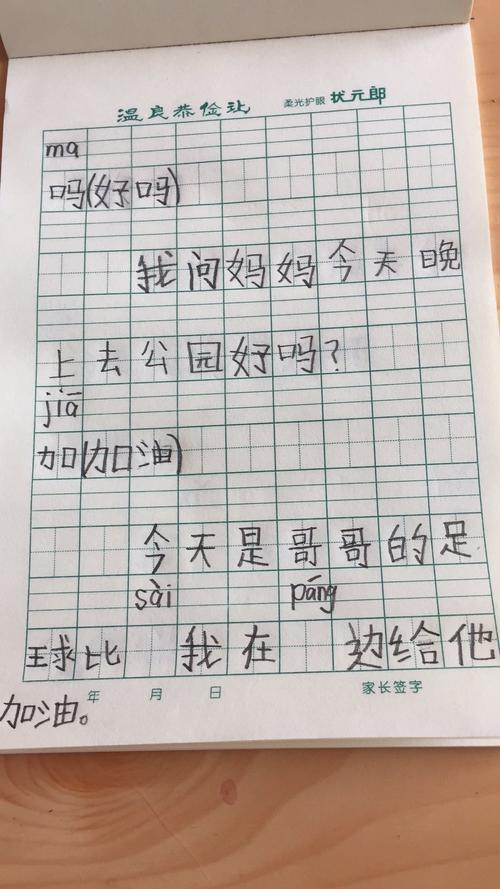 温良恭俭让 柔光护眼 状元郎
ma
吗(好吗)
我问妈妈今天晚
上去公园好吗?
jiā
加(加油)
今天是哥哥的足
sài páng
球比 我在 边给他
年 月 日 家长签字
加油。